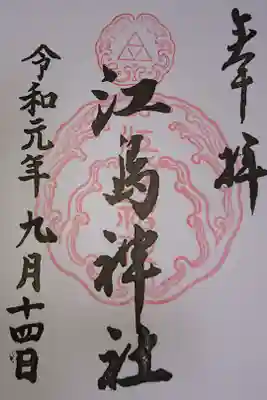 奉拝
江島神社
令和元年九月十四日